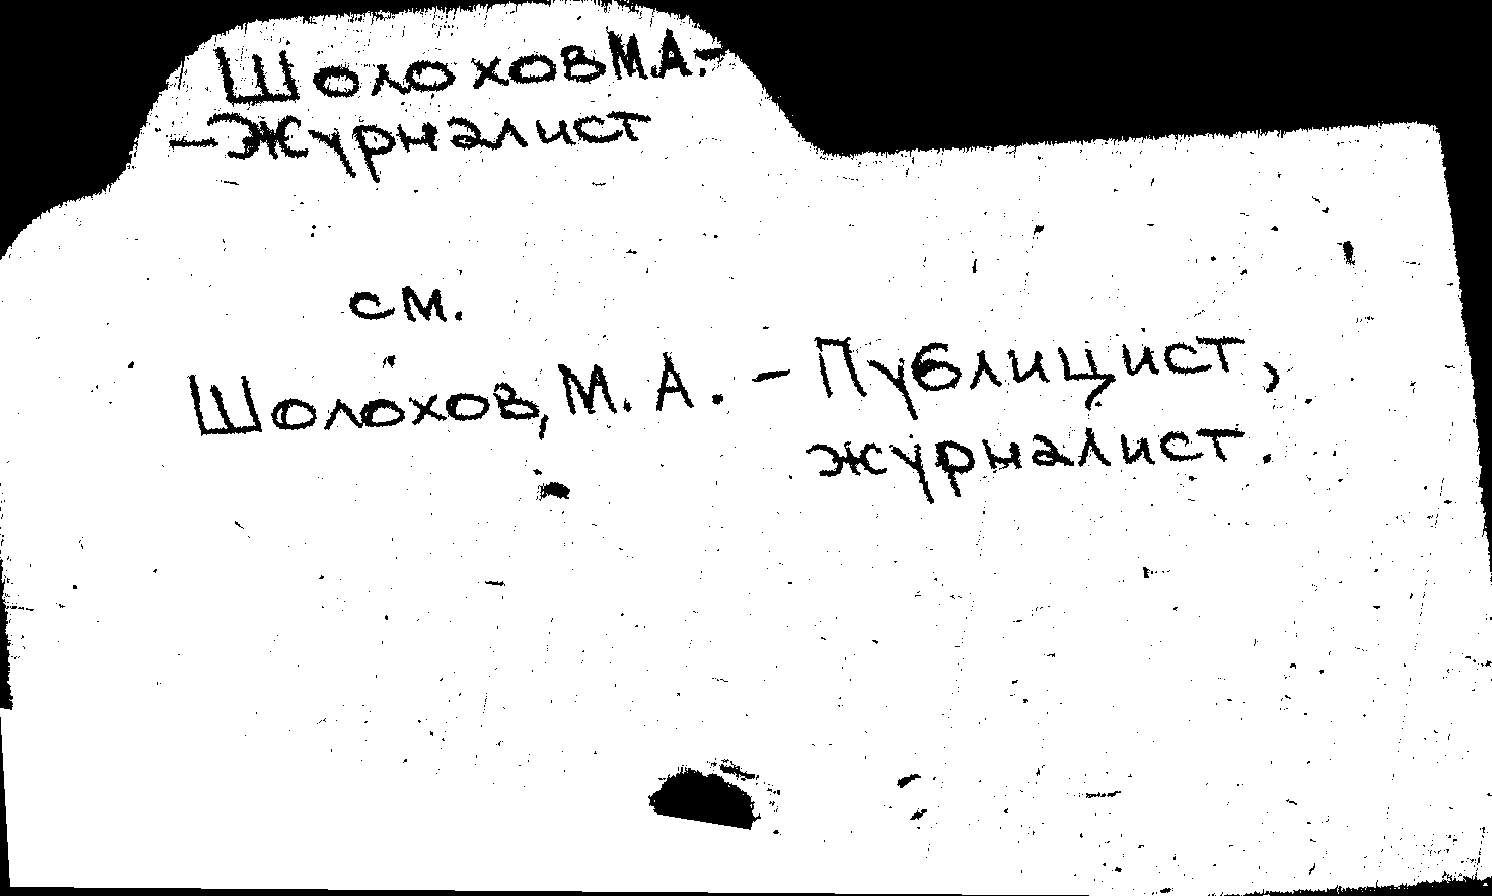 Шолохов М.А.-
-Журналист
см.
Шолохов, М. А. - Публицист,
журналист.